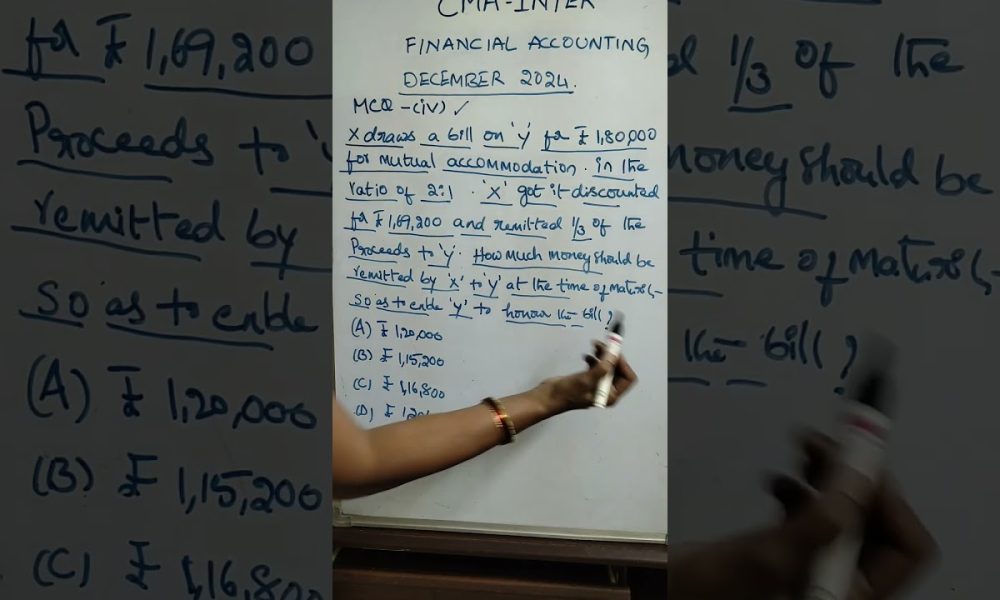 CMA-INTER
FINANCIAL ACCOUNTING
DECEMBER 2024.
MCQ-(iv) ✓
X draws a bill on 'y' for ₹ 1,80,000
for mutual accommodation. in the
ratio of 2:1. 'X' got it discounted
for ₹ 1,69,200 and remitted 1/3 of the
Proceeds to 'y'. How much money should be
remitted by 'x' to 'y' at the time of
so as to 'y' to honour the bill?
(A) ₹ 1,20,000
(B) ₹ 1,15,200
(C) ₹ 1,16,800
(D) ₹
for ₹ 1,69,200
Proceeds to 'y
remitted by
so as to
(A) ₹ 1,20,000
(B) ₹ 1,15,200
(C) ₹ 1,16,800
1/3 of the
money should be
time of
the bill?